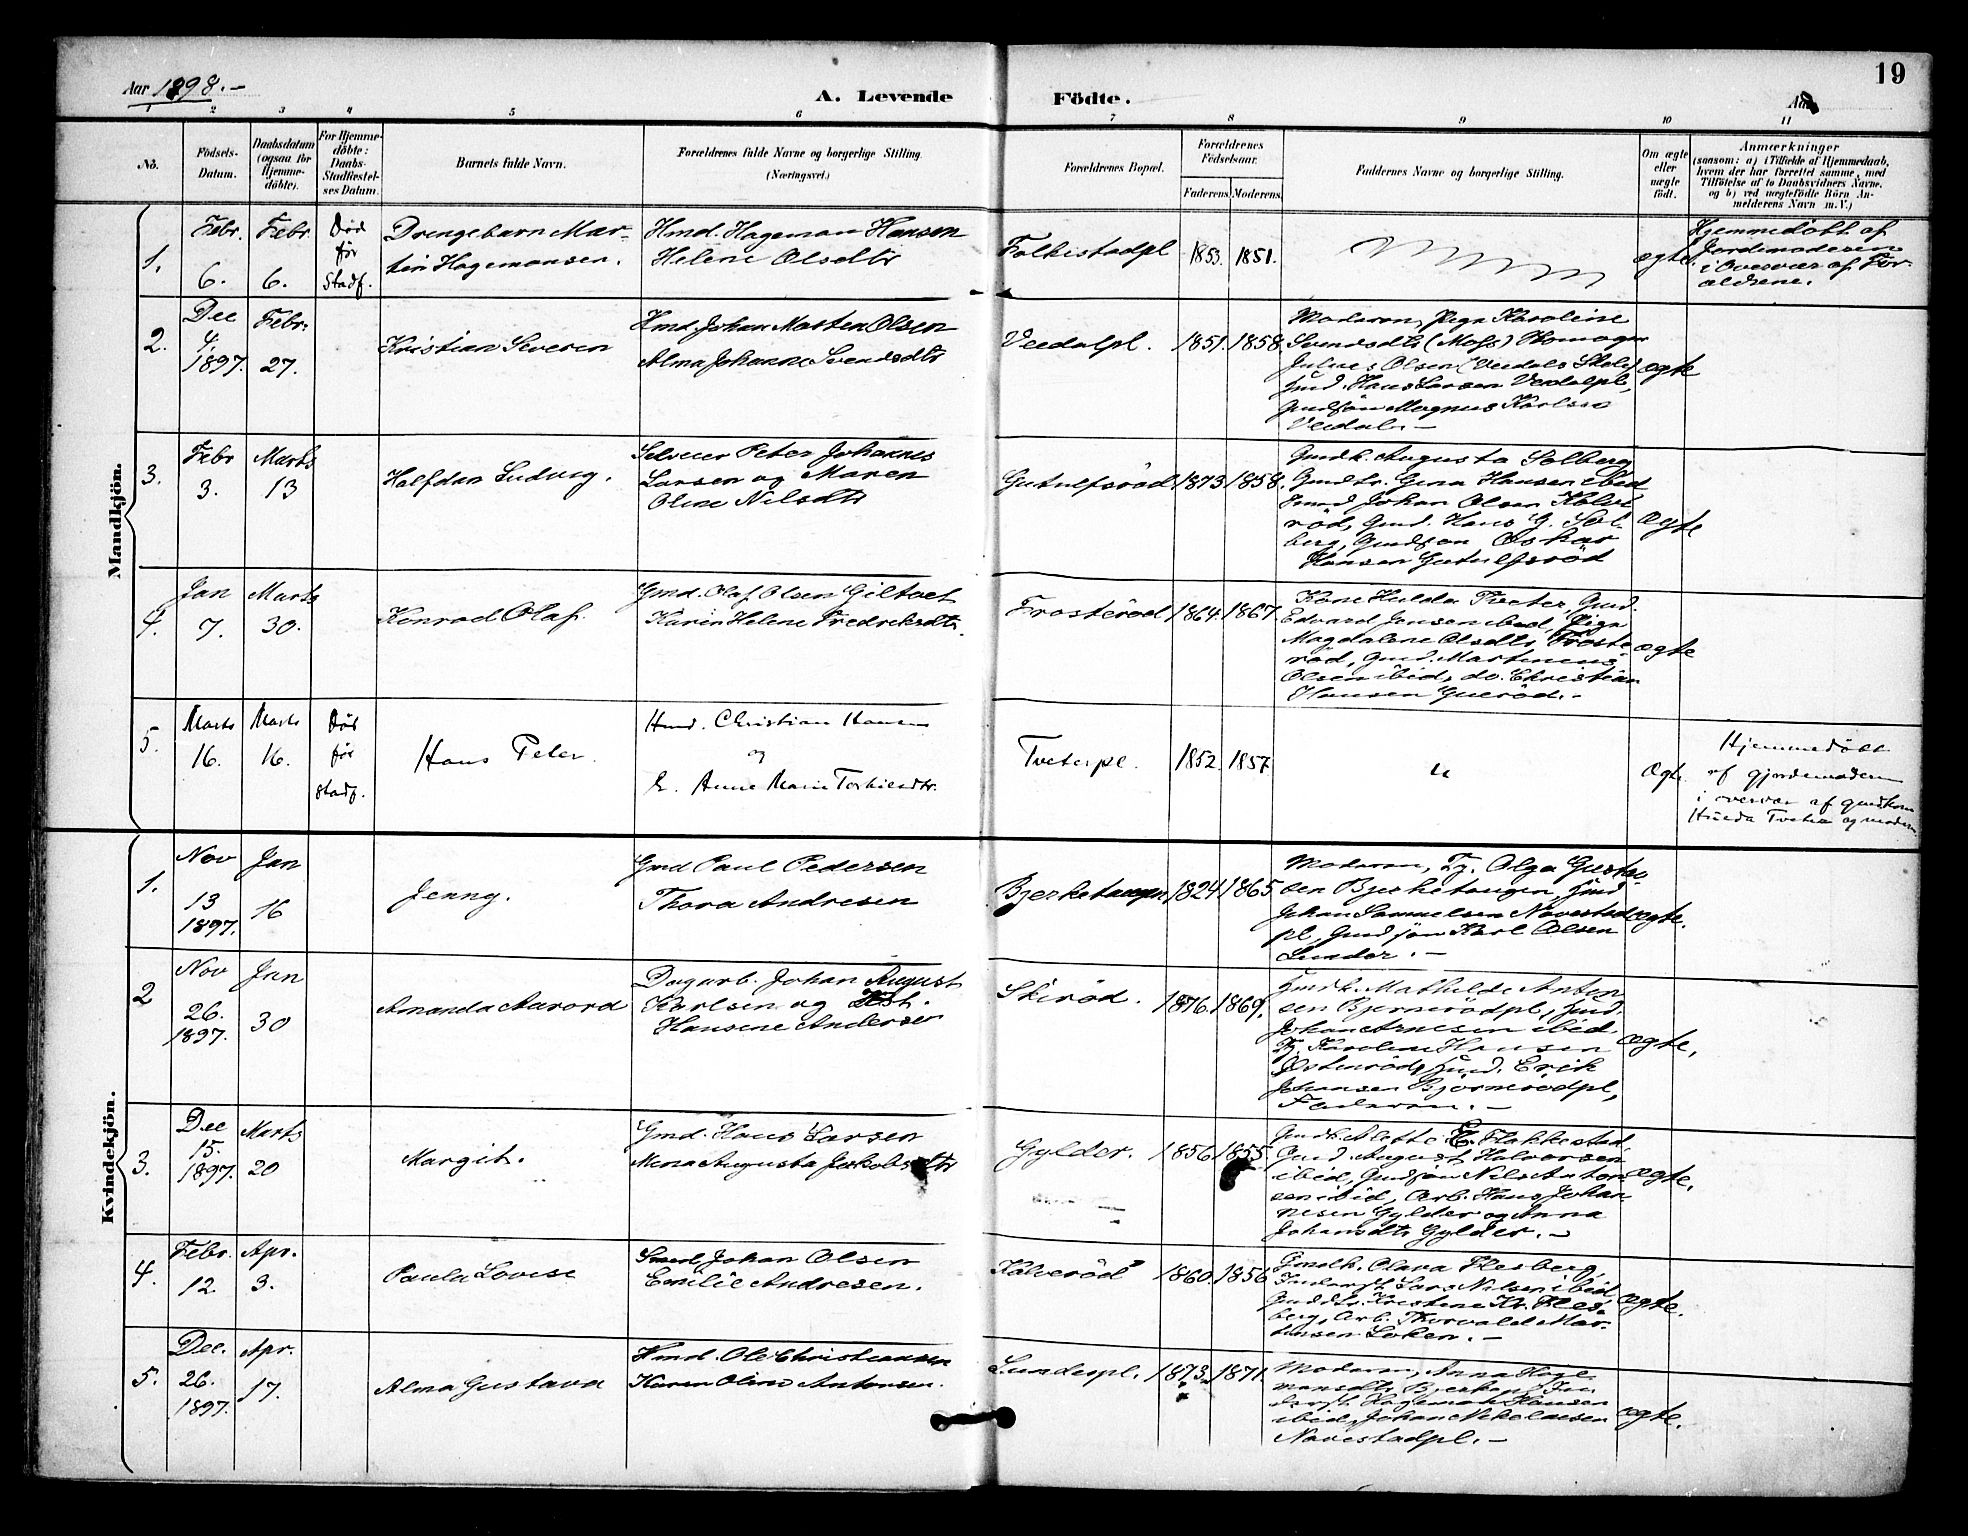 19
Aar 1898.-
A. Levende Födte.
Aar
1 2 3 4 5 6 7 8 9 10 11
No.
Födsels-Datum.
Daabsdatum (ogsaa for Hjemme-döbte).
For Hjemme-döbte: Daabs-Stadfæstel-ses Datum.
Barnets fulde Navn.
Forældrenes fulde Navne og borgerlige Stilling. (Næringsvei.)
Forældrenes Bopæl.
Forældrenes Födselsaar.
Faderens. Moderens.
Faddernes Navne og borgerlige Stilling.
Om ægte eller uægte födt.
Anmærkninger
(saasom: a) i Tilfælde af Hjemmedaab,
hvem der har forrettet samme, med
Tilföielse af to Daabsvidners Navne,
og b) ved uægtefödte Börn An-
melderens Navn m. V.)
Mandkjön.
1.
Febr. 6.
Febr. 6.
Död för Stadf.
Drengebarn Mar-
tin Hagemansen.
Hmd. Hageman Hansen
Helene Olsdtr
Folkestadpl
1853. 1851.
ægte.
Hjemmedöbt af
Jordemoderen
i Overvær af For-
ældrene.
2.
Dec 4. 1897.
Febr. 27.
Kristian Severin
Hmd. Johan Marten Olsen
Alma Johanne Svendsdtr
Veedalpl.
1851. 1858.
Moderen, Pige Karoline
Svendsdtr (Moss)
Julius Olsen (Veedals Skole)
Hmd. Hans Larsen Veedalpl,
Gmdsön Magnus Karlsen
Veedal. -
ægte
3.
Febr 3.
Marts 13
Halfdan Ludvig.
Selveier Peter Johannes
Larsen og Maren
Oline Nilsdtr
Gutulfsröd.
1873. 1858.
Gmdk. Augusta Solberg
Gmdtr. Gina Hansen ibid
Gmd Johan Olsen Kalve
röd, Gmd. Hans G. Sol-
berg, Gmdsön Oskar
Hansen Gutulfsröd
Ægte
4.
Jan 7.
Marts 30.
Konrad Olaf.
Gmd. Olaf Olsen Giltvet
Karin Helene Fredriksdtr.
Frosteröd
1864. 1867.
Kone Hulda Tveter, Gmd.
Edvard Jensen ibid, Pige
Magdalene Olsdtr Froste
röd, Gmd. Martinius
Olsen ibid, do. Christian
Hansen Gueröd. -
ægte
5.
Marts 16.
Marts 16.
Död för stadf.
Hans Peter.
Hmd. Christian Hansen
og
E. Anne Marie Torkildsdtr.
Tveterpl.
1852. 1857
"
Ægte
Hjemmedöbt
af gjordemoderen
i overvær af gmdkone
Hulda Tveter og moderen
Kvindekjön.
1.
Nov 13 1897.
Jan 16
Jenny.
Gmd Paul Pedersen
Thora Andresen
Bjerketangen,
1824. 1865.
Moderen, Tj. Olga Gustav-
sen Bjerketangen, Hmd
Johan Samuelsen Navestad
pl, Gmdsön Karl Olsen
Lunder. -
ægte.
2
Nov 26. 1897.
Jan 30
Amanda Aarora
Dagarb. Johan August
Karlsen og Hst.
Hansine Andersen
Skiröd.
1876. 1869.
Hmdk. Mathilde Anton
sen Bjerneröd pl, Hmd.
Johan Arnesen ibid.
Tj. Karoline Hansen
Østenröd, Hmd. Erik
Johansen Bjørneröd pl,
Faderen. -
ægte.
3.
Dec 15. 1897.
Marts 20
Margit.
Gmd. Hans Larsen
Mena Augusta Jakobsdtr
Gylder.
1856. 1855.
Gmdk. Alette E. Flakkestad,
Gmd. August Halvorsen
ibid, Gmdsön Nils Anton
sen ibid, Arb. Hans Johan
nesen Gylder og Anna
Johansdtr Gylder. -
ægte.
4.
Febr. 12.
Apr. 3.
Paula Lovise
Smed Johan Olsen
Emilie Andresen.
Kalveröd
1860. 1856
Gmdk. Olava Flesberg,
Inderst Lars Nilsen ibid,
Gmddtr. Kristine Kr. Fles-
berg, Arb. Thorvald Mar-
tinsen Loken. -
ægte.
5.
Dec. 26. 1897.
Apr. 17.
Alma Gustava
Hmd. Ole Christiansen
Karen Oline Antonsen.
Lunderpl.
1873. 1871.
Moderen, Anna Hage-
mansdtr Bjerkepl, In-
derst Hageman Hansen
ibid, Johan Nikolaisen
Navestadpl. -
ægte.